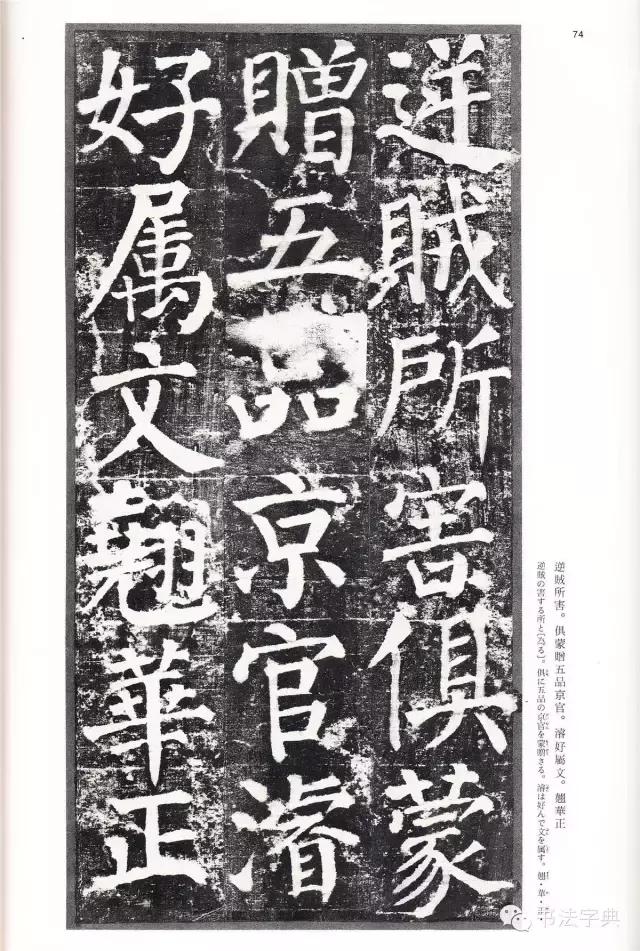 74
逆賊所害俱蒙
贈五品京官濬
好属文翹華正
逆賊所害。俱蒙贈五品京官。濬好屬文。翹華正
逆賊の害する所と〔為る〕。俱に五品の京官を蒙贈さる。濬は好んで文を属す。翹・華・正・
书法字典